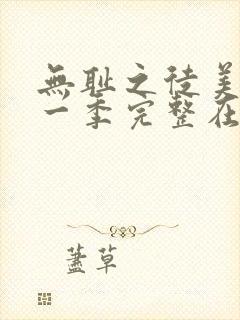 無耻之徒美
一季完整在
蓋草